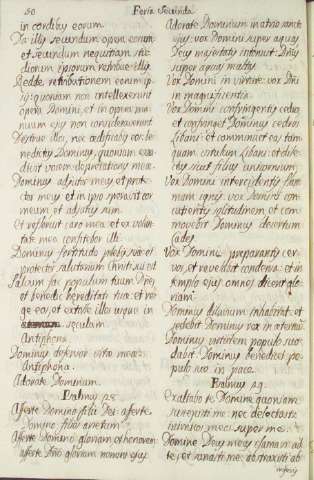 50 Feria Secunda
in cordibus eorum
Da illis secundum opera eorum
et secundum nequitiam stu-
diorum ipsorum retribue illis
Redde retributionem eorum ip-
sis: quoniam non intellexerunt
opera Domini, et in opera ma-
nuum ejus non considerarunt
Destrue illos, nec ædificabis eos: be-
nedictus Dominus, quoniam exau-
divit vocem deprecationis meæ.
Dominus adjutor meus et prote-
ctor meus et in ipso speravit cor
meum et adjutus sum.
Et refloruit caro mea: et ex volun-
tate mea confitebor illi.
Dominus fortitudo plebis suæ et
protector salutarium Christi sui est
Salvum fac populum tuum Dñe,
et benedic hæreditati tuæ: et re-
ge eos, et extolle illos usque in
sæculum.
Antiphona.
Dominus defensor vitæ meæ:
Antiphona.
Adorate Dominum.
Psalmus 28.
Aferte Domino filii Dei: aferte
Domino filios arietum.
Aferte Domino gloriam et honorem
aferte Dño gloriam nomini ejus
Adorate Dominum in atrio sancto
ejus: vox Domini super aquas
Deus majestatis intonuit: Dñus
super aquas multas
Vox Domini in virtute: vox Dñi
in magnificentia
Vox Domini confringentis cedros
et confringet Dominus cedros
Libani: et comminuet eas tam-
quam vitulum Libani: et dile-
ctus sicut filius unicornium
Vox Domini intercidentis flam-
mam ignis: vox Domini con-
cutientis solitudinem et com-
movebit Dominus desertum
Cades
Vox Domini præparantis cer-
vos, et revelabit condensa: et in
templo ejus omnes dicent glo-
riam
Dominus diluvium inhabitat et
sedebit Dominus rex in æternum
Dominus virtutem populo suo
dabit Dominus benedicet po-
pulo suo in pace.
Psalmus 29.
Exaltabo te Domine quoniam
suscepisti me: nec delectasti
inimicos meos super me.
Domine Deus meus clamavi ad
te, et sanasti me: ab traxisti ab